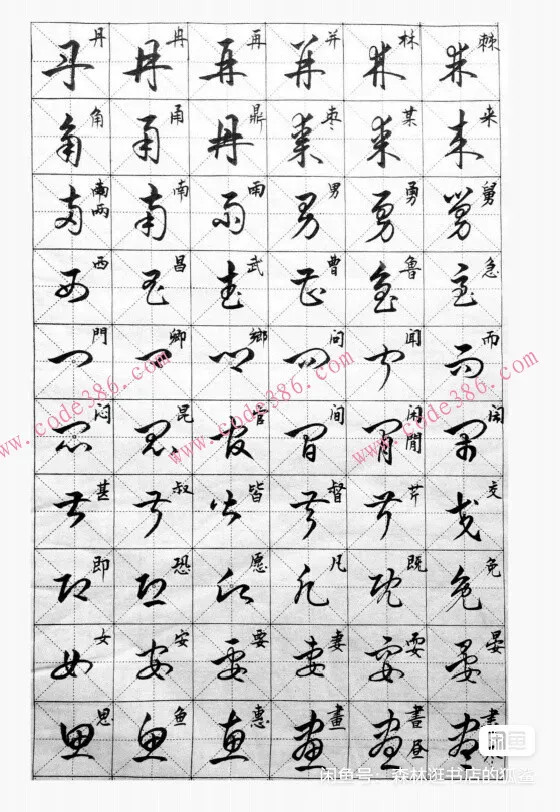 丹 冉 再 并 林 棘
角 甬 鼎 枣 某 来
两 南 雨 男 勇 舅
西 昌 武 曹 鲁 急
門 卿 鄉 问 闻 而
闷 昆 官 间 闲 閒 闹
甚 叔 皆 督 芹 交
即 恐 愿 凡 既 免
女 安 要 妻 耍 晏
思 鱼 惠 畫 書 昼 書
www.code386.com
www.code386.com
www.code386.com
闲鱼
闲鱼号：森林逛书店的狐鲨